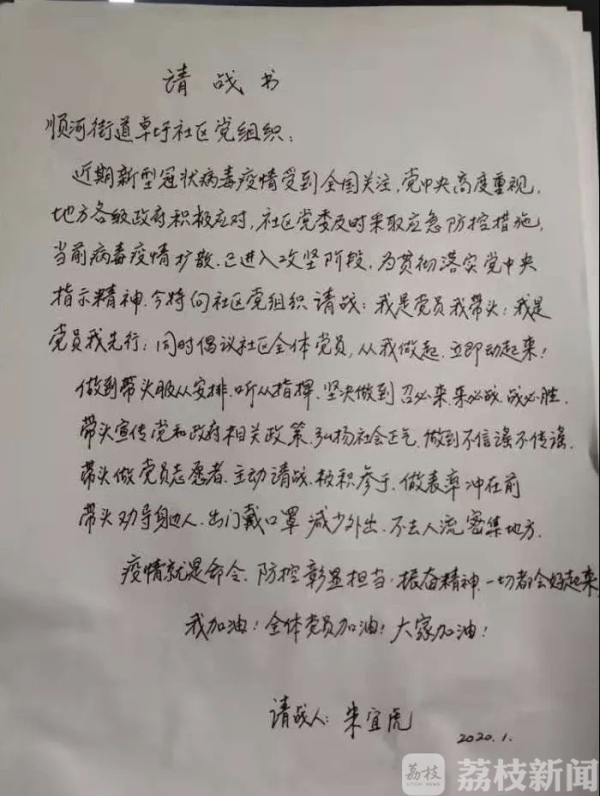 请战书
顺河街道卓圩社区党组织：
近期新型冠状病毒疫情受到全国关注，党中央高度重视，
地方各级政府积极应对，社区党委及时采取应急防控措施，
当前病毒疫情扩散、已进入攻坚阶段，为贯彻落实党中央
指示精神，今特向社区党组织请战：我是党员我带头；我是
党员我先行；同时倡议社区全体党员，从我做起、立即动起来！
做到带头服从安排、听从指挥、坚决做到召必来、来必战、战必胜。
带头宣传党和政府相关政策、弘扬社会正气、做到不信谣不传谣。
带头做党员志愿者、主动请战、积极参于、做表率冲在前
带头劝导身边人、出门戴口罩 减少外出、不去人流密集地方、
疫情就是命令、防控彰显担当、振奋精神、一切都会好起来
我加油！全体党员加油！大家加油！
请战人：朱宜虎
2020.1.
荔枝 荔枝新闻